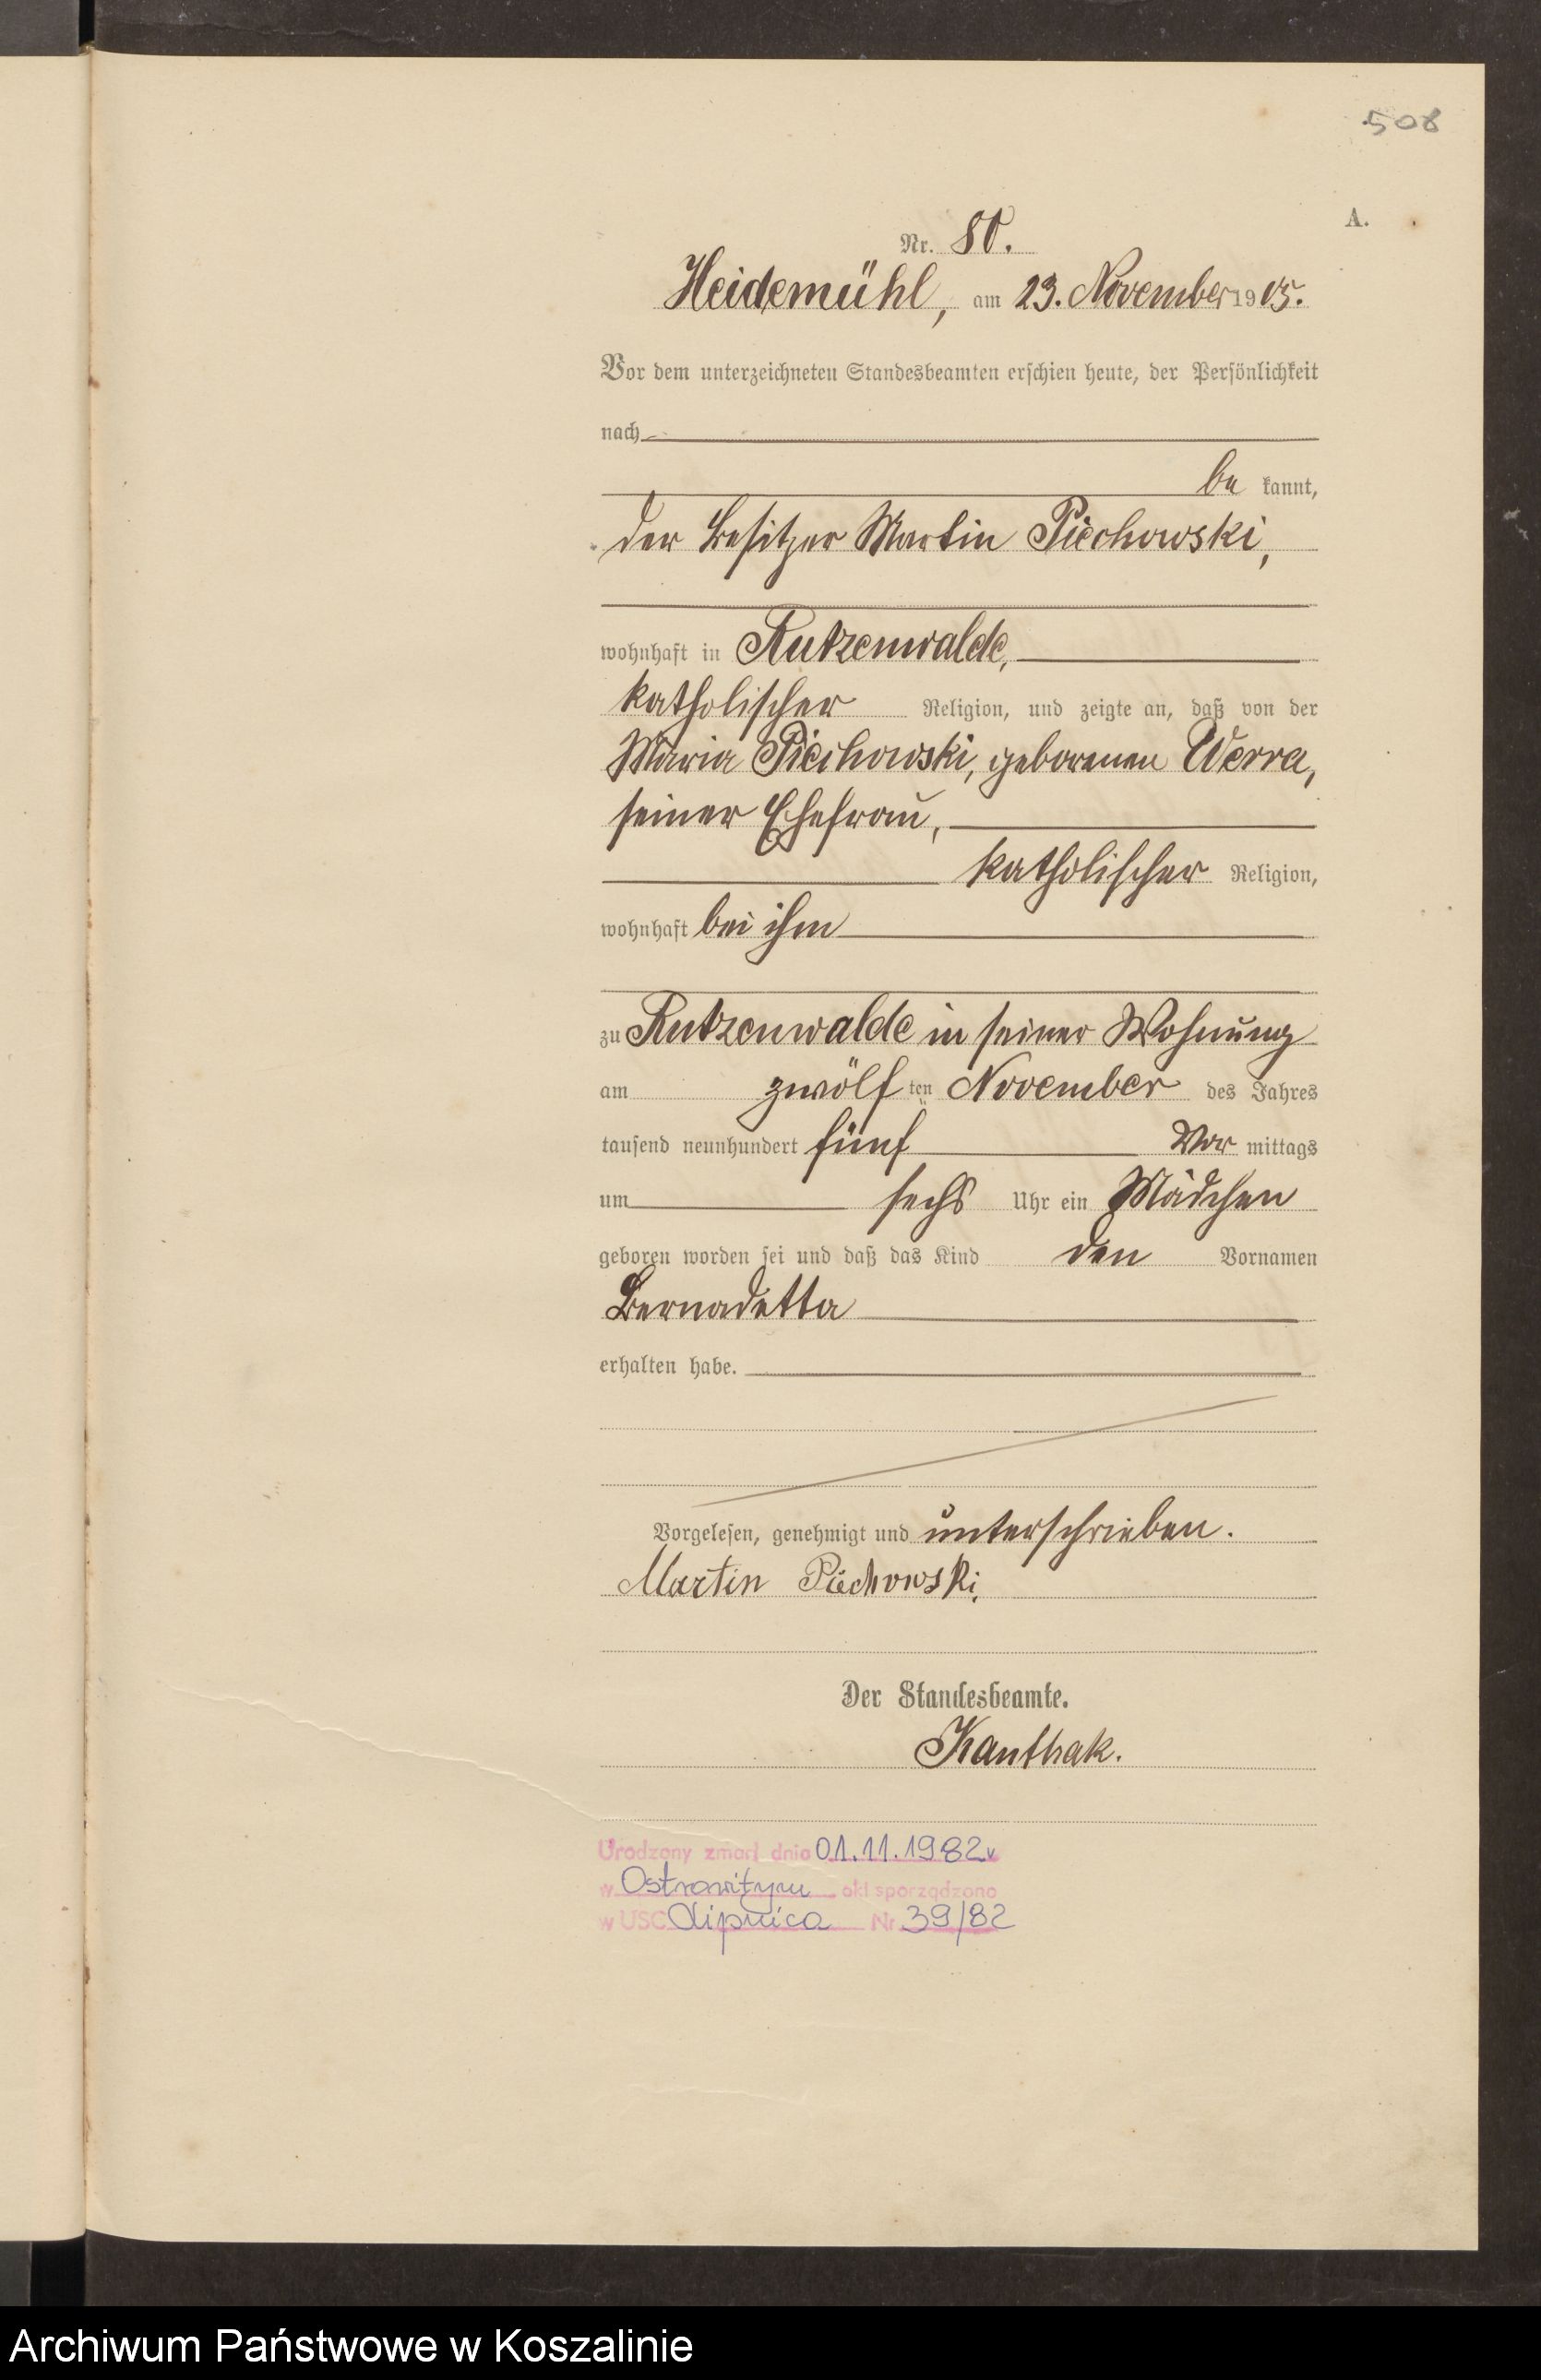 508
A.
Nr. 80.
Heidemühl, am 23. November 1905.
Vor dem unterzeichneten Standesbeamten erschien heute, der Persönlichkeit
nach
be kannt,
der Besitzer Martin Piechowski,
wohnhaft in Rutzenwalde,
katholischer Religion, und zeigte an, daß von der
Maria Piechowski, geborenen Werra,
seiner Ehefrau,
katholischer Religion,
wohnhaft bei ihm
zu Rutzenwalde in seiner Wohnung
am zwölf ten November des Jahres
tausend neunhundert fünf Vor mittags
um sechs Uhr ein Mädchen
geboren worden sei und daß das Kind den Vornamen
Bernadetta
erhalten habe.
Vorgelesen, genehmigt und unterschrieben.
Martin Piechowski,
Der Standesbeamte.
Kanthak.
Urodzony zmarł dnia 01.11.1982
w Ostrowitym akt sporządzono
w USC Lipnica Nr 39/82
Archiwum Państwowe w Koszalinie